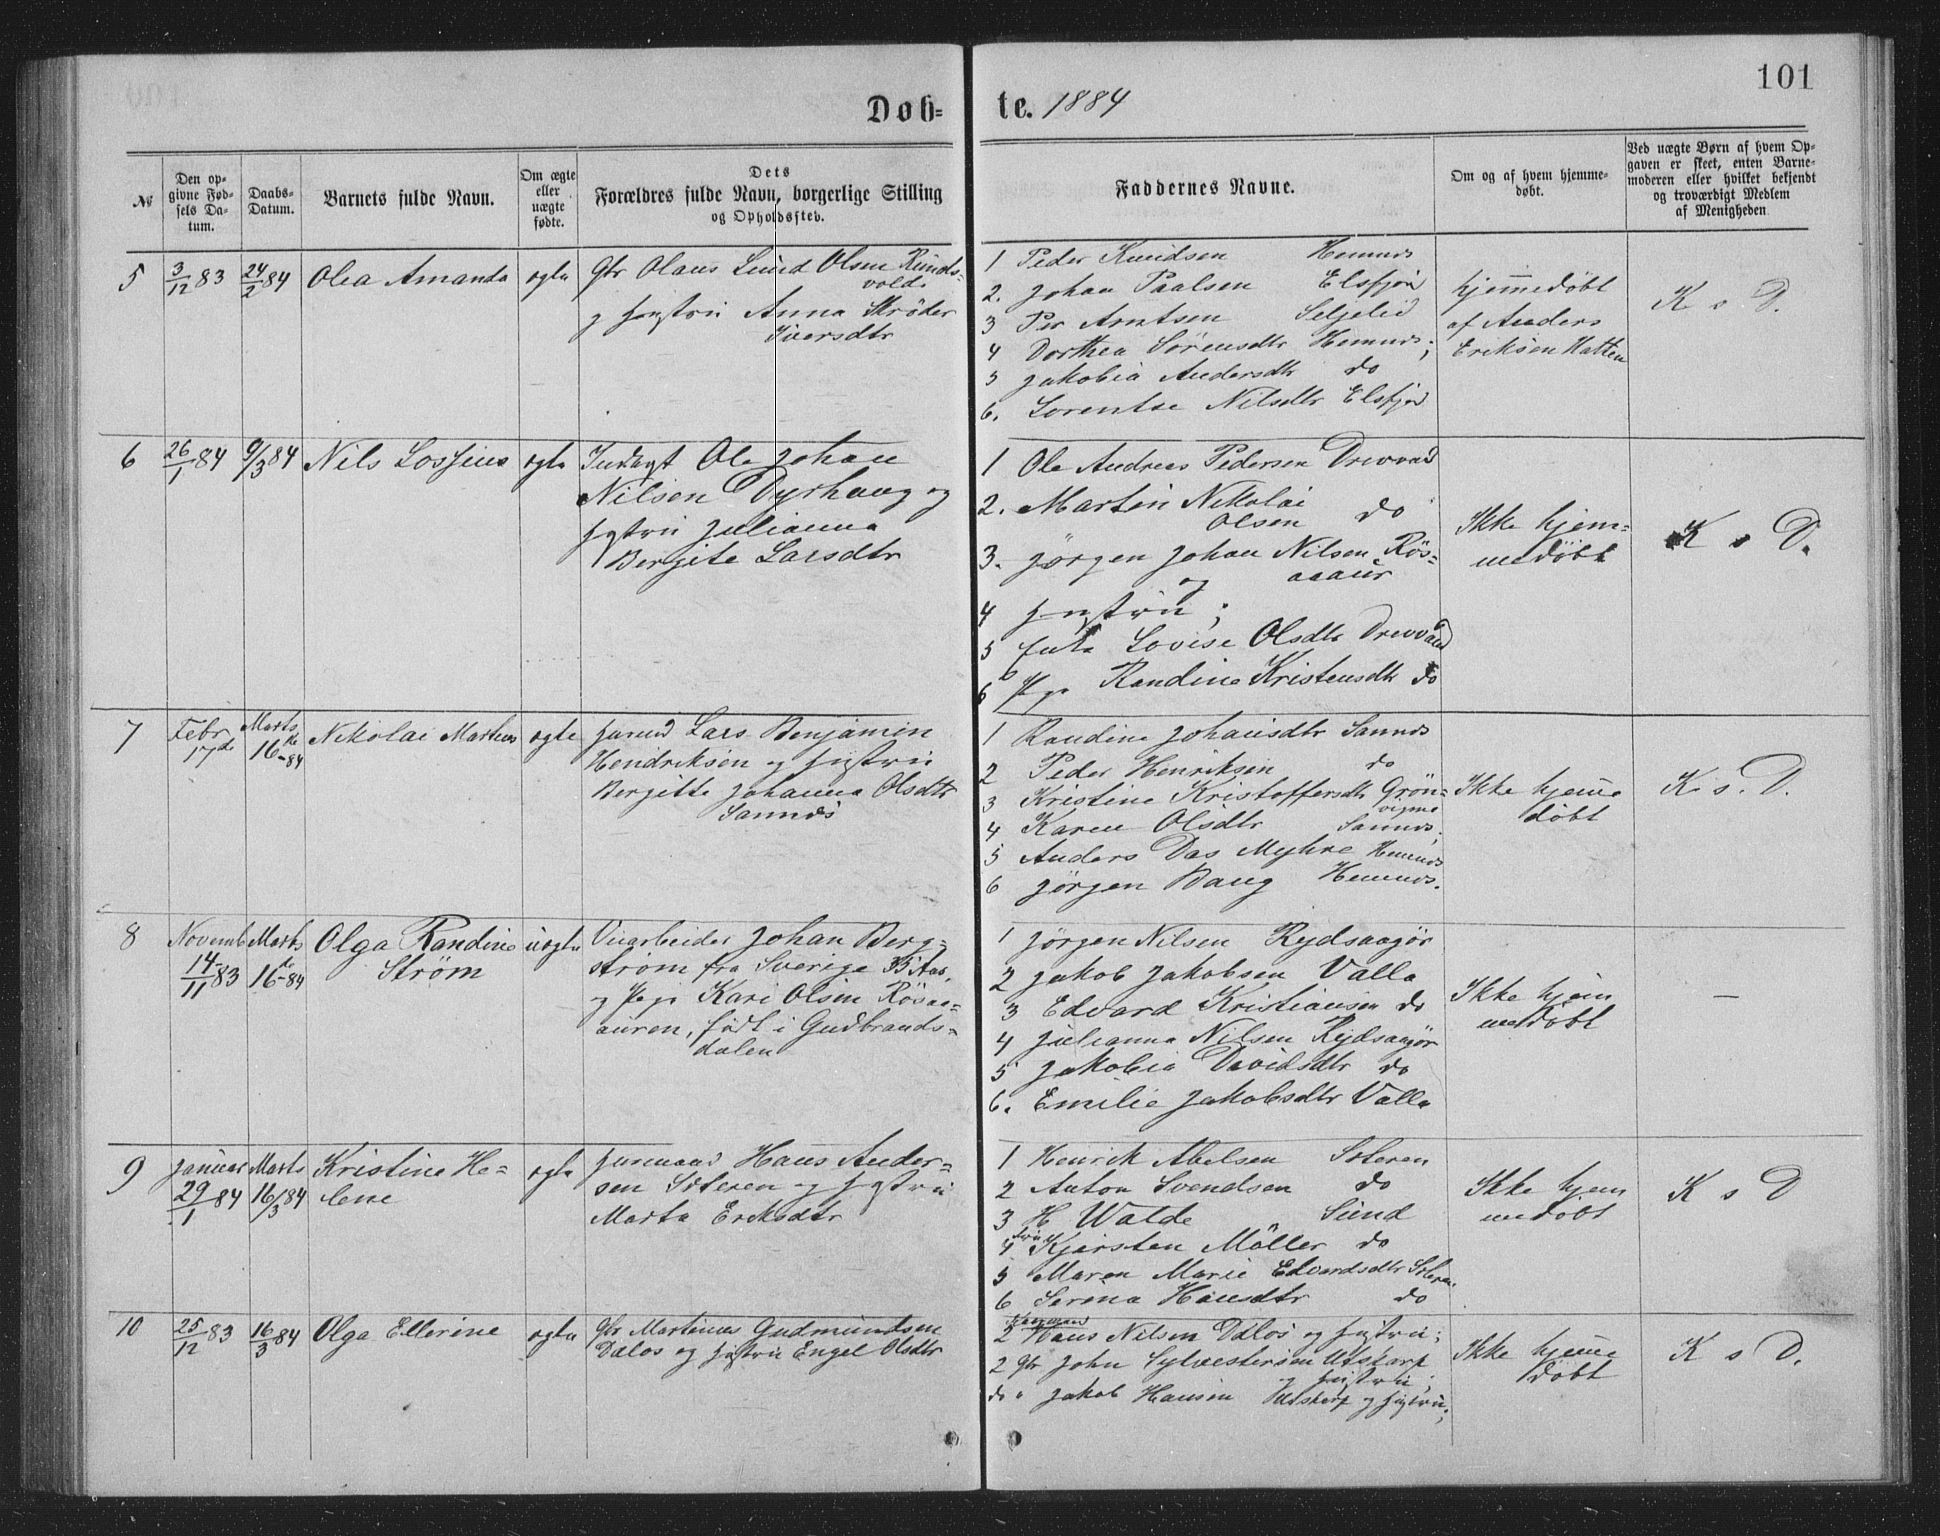 101
Döb= te. 1884
№
Den op-
givne Fød-
sels Da-
tum.
Daabs-
Datum.
Barnets fulde Navn.
Om ægte
eller
uægte
fødte.
Dets
Forældres fulde Navn, borgerlige Stilling
og Opholdssted.
Faddernes Navne.
Om og af hvem hjemme-
døbt.
Ved uægte Børn af hvem Op-
gaven er skeet, enten Barne-
moderen eller hvilket bekjendt
og troværdigt Medlem
af Menigheden
5
3/12 83
24/2 84
Olea Amanda
ægte
Gbr Olaus Lund Olsen
og hustru Anna Strøder
Iversdtr
1 Peder Knudsen Hemnes
2. Johan Paalsen Elsfjord
3 Per Arntsen Seljelid
4 Dorthea Sörensdtr Hemnes;
5 Jakobia Andersdtr do
6. Lorentse Nilsdtr Elsfjord
hjemmedöbt
af Anders
Eriksen Hatten
K s D.
6
26/1 84
9/3 84
Nils Lossius
ægte
Inderst Ole Johan
Nilsen Dyrhaug og
hustru Julianna
Bergite Larsdtr
1 Ole Andreas Pedersen Drevvad
2. Martin Nikolai
Olsen do
3. Jörgen Johan Nilsen Rös-
aaaur
og
4 hustru;
5 Enke Lovise Olsdtr Drevvad
6 Pge Randine Kristensdtr do
Ikke hjem-
medöbt
K s D.
7
Febr
17de
Marts
16de -84
Nikolai Martens
ægte
Husmd Lars Benjamin
Hendriksen og hustru
Bergitte Johanna Olsdtr
Sannes
1 Randine Johansdtr Sannes
2 Peder Henriksen do
3 Kristine Kristoffersdtr Grön-
vigmo
4 Karen Olsdtr Sannes.
5 Anders Das Myhre Hemnes
6 Jörgen Baug Hemnes.
Ikke hjemme
döbt
K. s. D.
8
Novemb
14/11 83
Marts
16de -84
Olga Randine
Ström
uægte
Johan Berg-
ström fra Sverige 35 Aar,
og Pige Kari Olsen Rösaa-
auren, født i Gudbrands-
dalen
1 Jörgen Nilsen Rydsaagör
2 Jakob Jakobsen Valla
3 Edvard Kristiansen do
4 Julianna Nilsen Rydsaagör
5 Jakobia Davidsdtr do
6. Emilie Jakobsdtr Valla
Ikke hjem
medöbt
—
9
Januar
29/1 84
Marts
16/3 84
Kristine He-
lene
ægte
Husmand Hans Ander-
sen Sæteren og hustru
Marta Eriksdtr
1 Henrik Abelsen Sæteren
2 Anton Svendsen do
3 H Walde Sund
4 Fru Kjersten Möller do
5 Maren Marie Edvardsdtr Sæteren
6 Serina Hansdtr do
Ikke hjem
medöbt
K s D
10
25/12 83
16/3 84
Olga Ellerine
ægte
Gbr Martinus Gudmundsen
Dalos og hustru Engel Olsdtr
2 Kaarmand Hans Nilsen Dalos og hustru;
2 Gbr John Sylvestersen Utskarp
og hustru;
do " Jakob Hansen Utskarp og hustru;
Ikke hjemme
döbt
K s D.